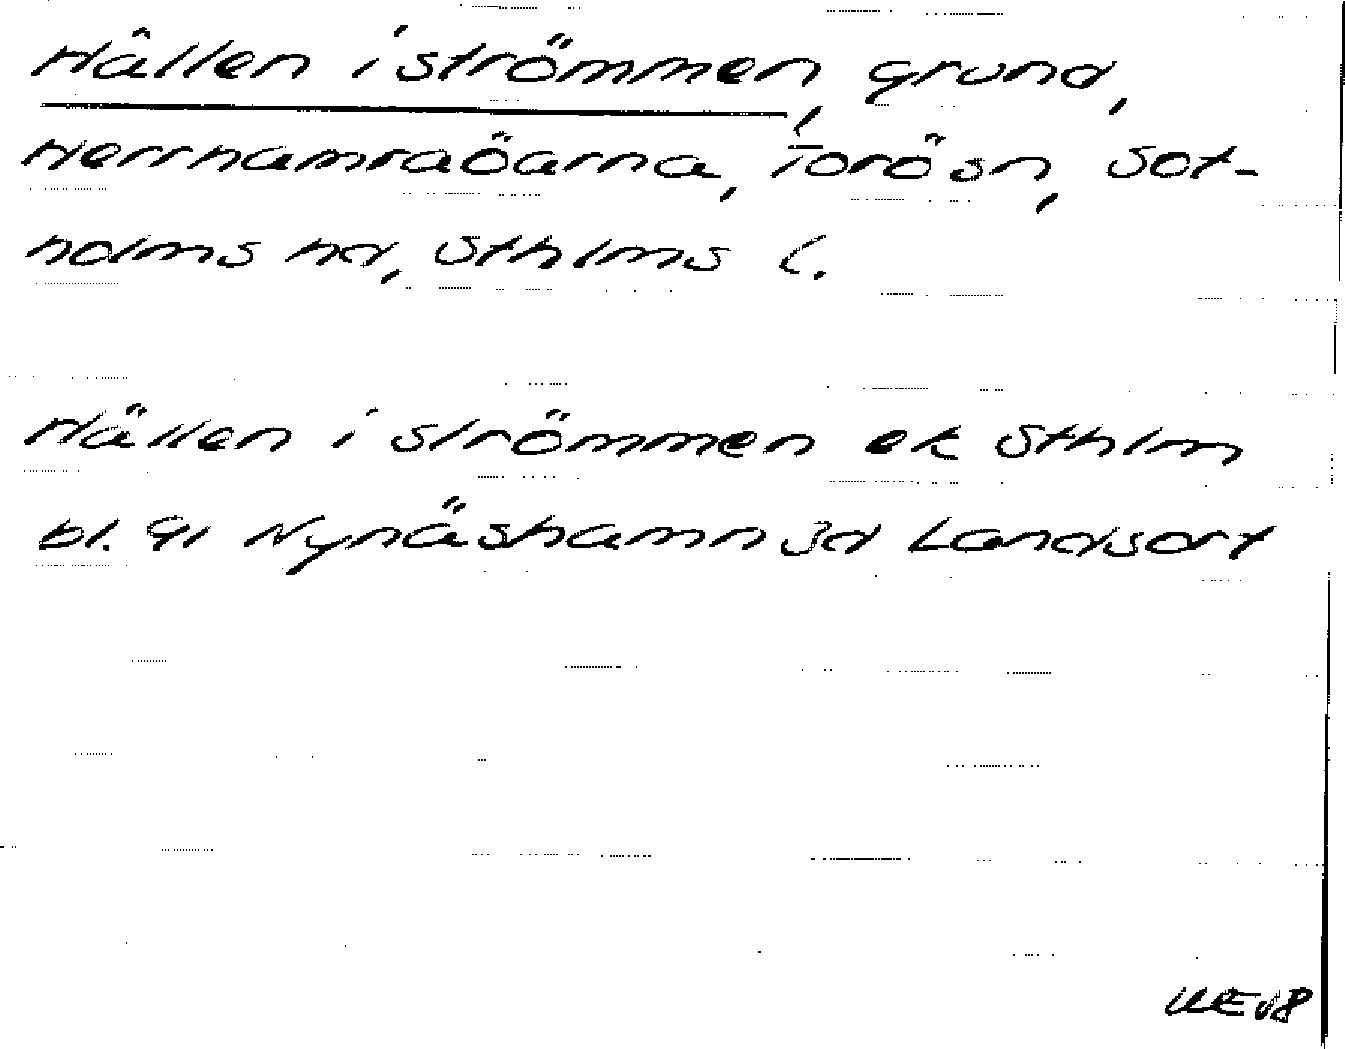 Hällen i strömmen, grund,
Herrhamraöarna, Torö sn, Sot-
holms hd, Sthlms l.
Hällen i strömmen ek Sthlm
bl. 91 Nynäshamn 3d Landsort